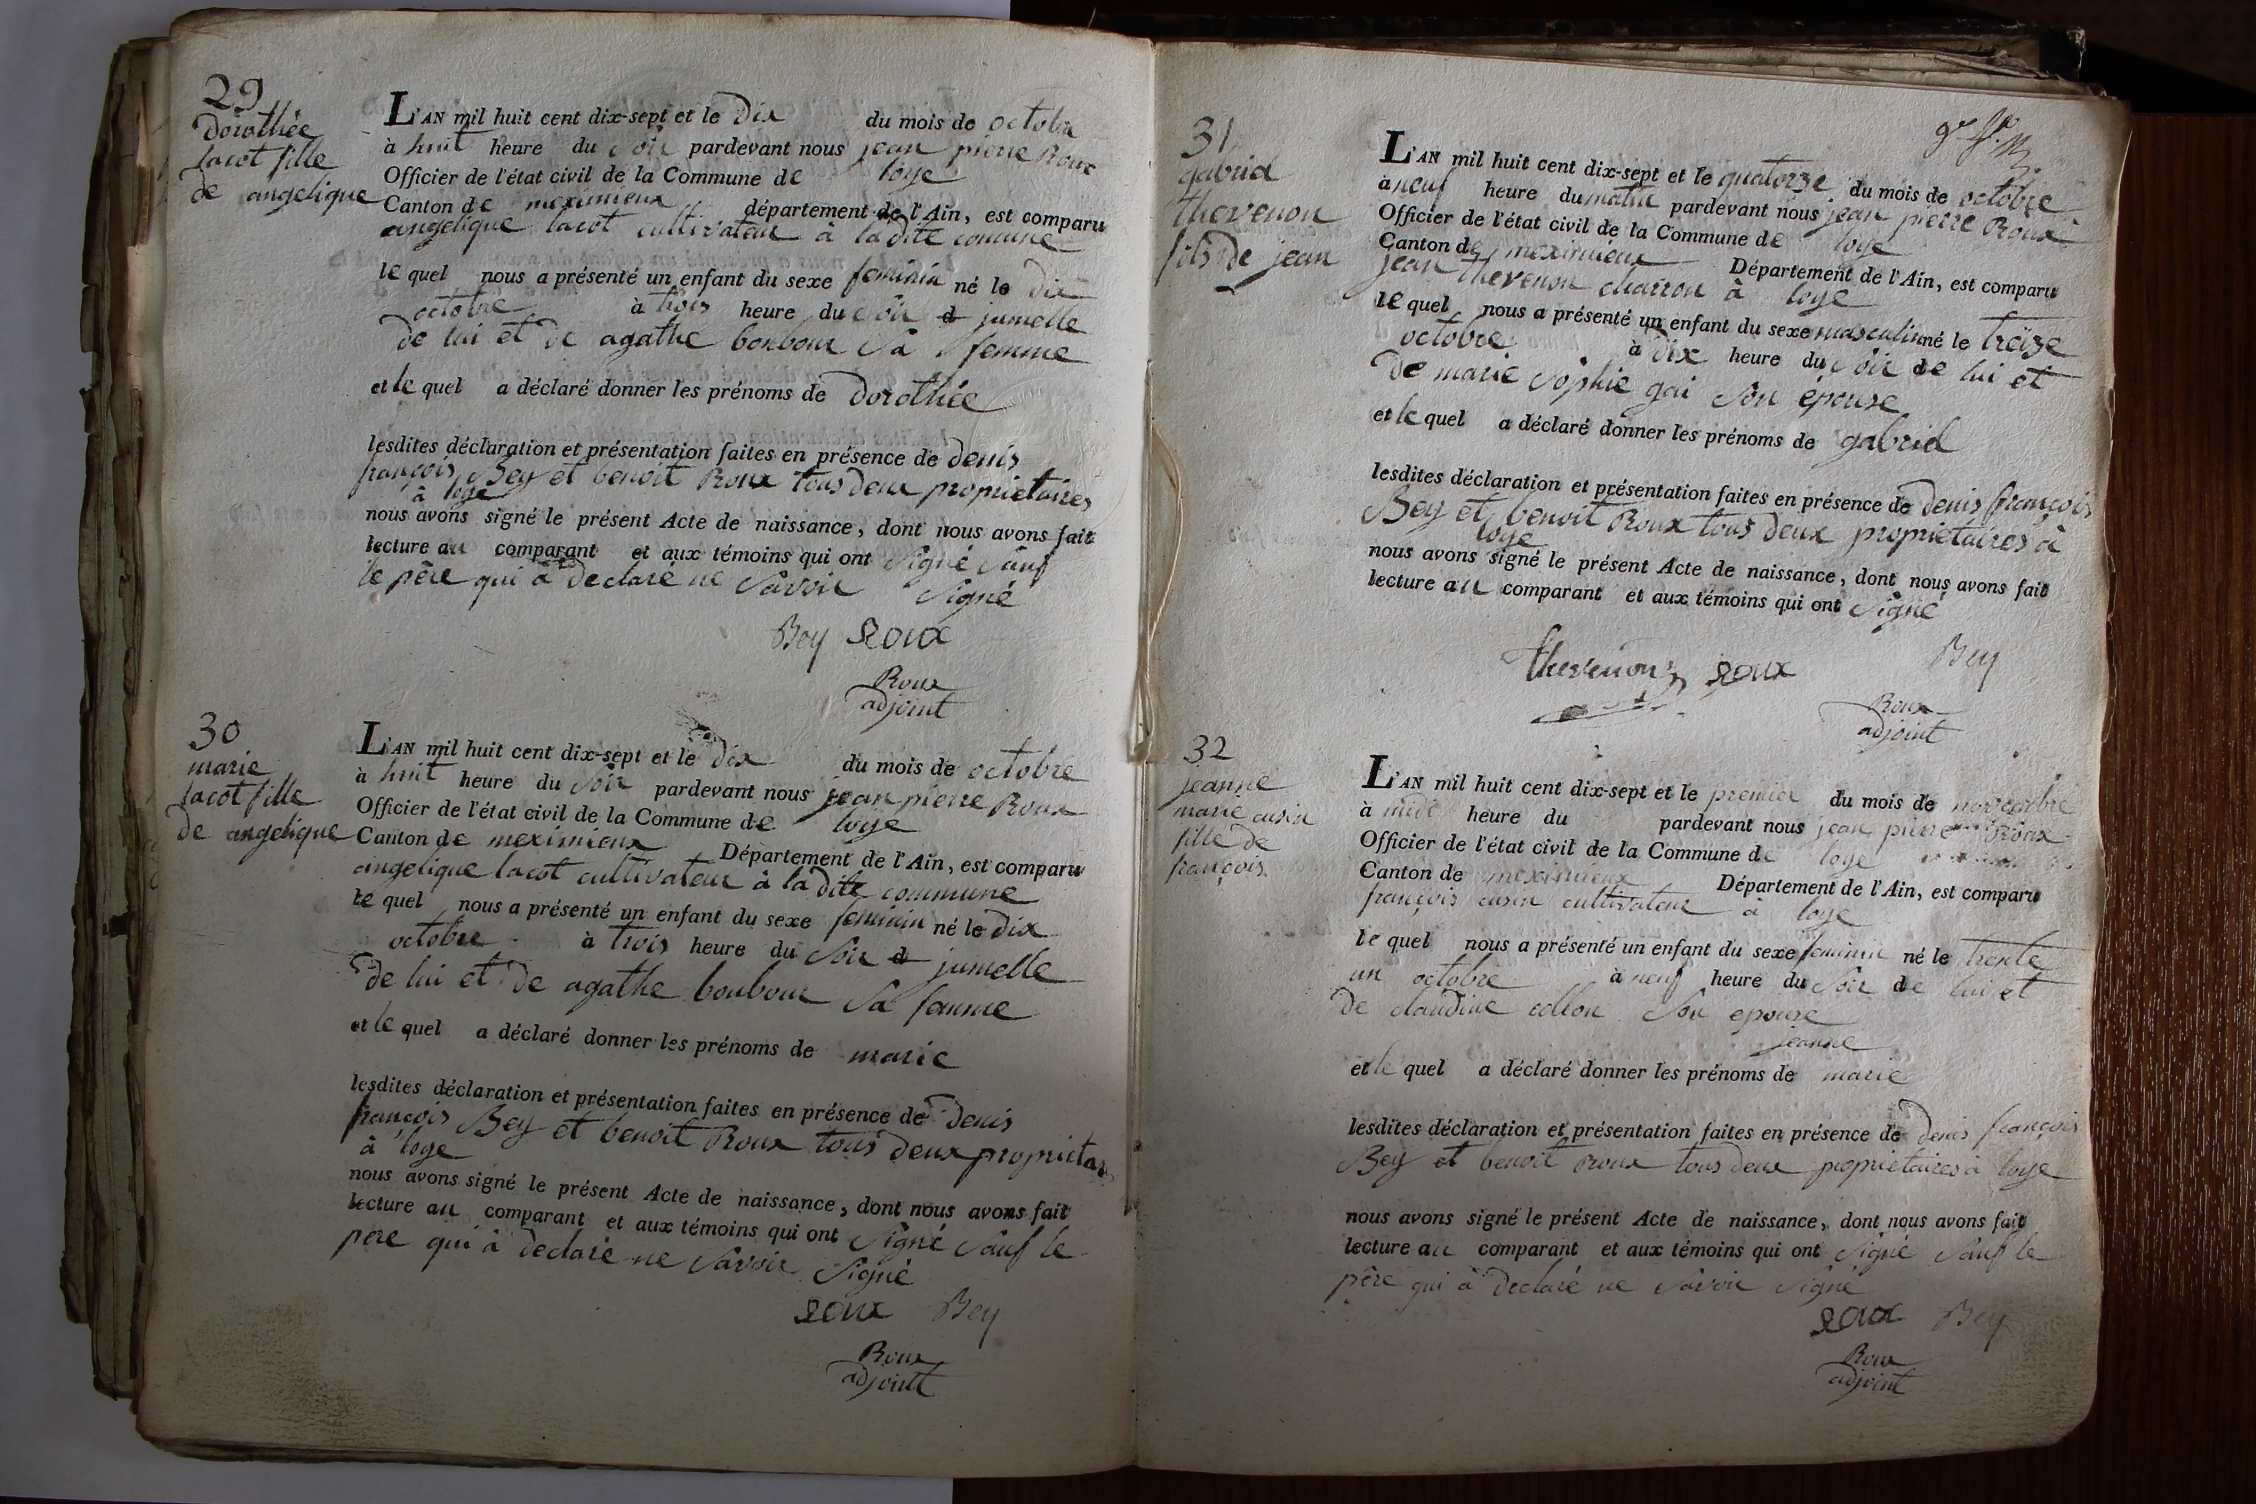 29
dorothée
lacot fille
de angelique
L'AN mil huit cent dix-sept et le dix du mois de octobre
à huit heure du soir pardevant nous jean pierre Roux
Officier de l'état civil de la Commune de loye
Canton de meximieux département de l'Ain, est comparu
angelique lacot cultivateur à la dite comune
le quel nous a présenté un enfant du sexe feminin né le dix
octobre à trois heure du soir d jumelle
de lui et de agathe bonbour sa femme
et le quel a déclaré donner les prénoms de dorothée
lesdites déclaration et présentation faites en présence de denis
françois Bey et benoit Roux tous deux proprietaires
à loye
nous avons signé le présent Acte de naissance, dont nous avons fait
lecture au comparant et aux témoins qui ont signé sauf
le père qui à declaré ne savoir signé
Bey Roux
Roux
adjoint
30
marie
lacot fille
de angelique
L'AN mil huit cent dix-sept et le dix du mois de octobre
à huit heure du soir pardevant nous jean pierre Roux
Officier de l'état civil de la Commune de loye
Canton de meximieux Département de l'Ain, est comparu
angelique lacot cultivateur à la dite commune
le quel nous a présenté un enfant du sexe feminin né le dix
octobre à trois heure du soir d jumelle
de lui et de agathe bonbour sa femme
et le quel a déclaré donner les prénoms de marie
lesdites déclaration et présentation faites en présence de denis
françois Bey et benoit Roux tous deux proprietaires
à loye
nous avons signé le présent Acte de naissance, dont nous avons fait
lecture au comparant et aux témoins qui ont signé sauf le
père qui à declaré ne savoir signé
Roux Bey
Roux
adjoint
31
gabriel
thevenon
fils de jean
L'AN mil huit cent dix-sept et le quatorze du mois de octobre
à neuf heure du matin pardevant nous jean pierre Roux
Officier de l'état civil de la Commune de loye
Canton de meximieux Département de l'Ain, est comparu
jean thevenon charron à loye
le quel nous a présenté un enfant du sexe masculin né le treize
octobre à dix heure du soir de lui et
de marie sophie gai son épouse
et le quel a déclaré donner les prénoms de gabriel
lesdites déclaration et présentation faites en présence de denis françois
Bey et benoit Roux tous deux proprietaires à
loye
nous avons signé le présent Acte de naissance, dont nous avons fait
lecture au comparant et aux témoins qui ont signé
thevenon Roux Bey
Roux
adjoint
32
jeanne
marie cusin
fille de
françois
L'AN mil huit cent dix-sept et le premier du mois de novembre
à midi heure du pardevant nous jean pierre Roux
Officier de l'état civil de la Commune de loye
Canton de meximieux Département de l'Ain, est comparu
françois cusin cultivateur à loye
le quel nous a présenté un enfant du sexe feminin né le trente
un octobre à neuf heure du soir de lui et
de claudine collon son epouse
jeanne
et le quel a déclaré donner les prénoms de marie
lesdites déclaration et présentation faites en présence de denis françois
Bey et benoit Roux tous deux proprietaires à loye
nous avons signé le présent Acte de naissance, dont nous avons fait
lecture au comparant et aux témoins qui ont signé sauf le
père qui à declaré ne savoir signé
Roux Bey
Roux
adjoint